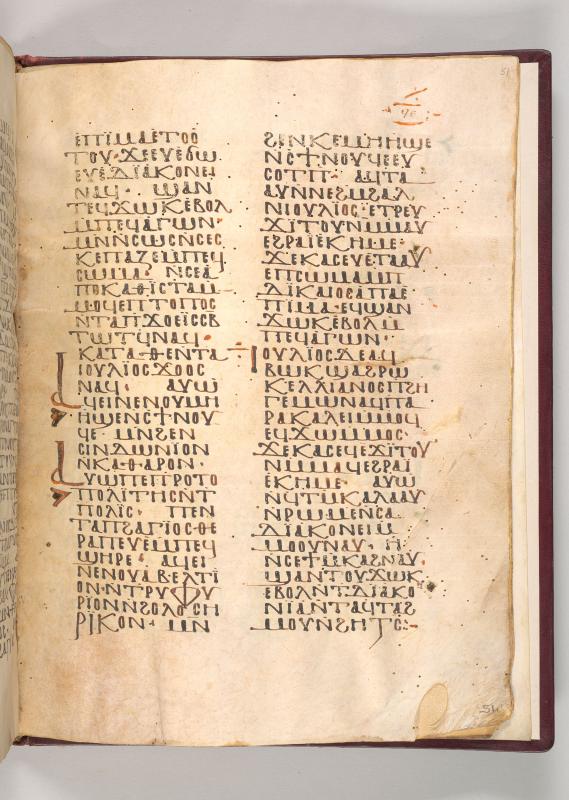 ⲉⲡⲓⲙⲁⲉⲧⲟⲩ
ⲧⲟⲩ· ϫⲉⲉⲩⲉϭⲱ
ⲉⲩⲉⲇⲓⲁⲕⲟⲛⲉⲓ
ⲛⲁϥ· ϣⲁⲛ
ⲧⲉϥϫⲱⲕⲉⲃⲟⲗ
ⲙⲡⲉϥⲁⲅⲱⲛ·
ⲙⲛⲛⲥⲱⲥⲛⲥⲉⲥ
ⲕⲉⲡⲁⲍⲉⲙⲡⲉϥ
ⲥⲱⲙⲁ· ⲛⲥⲉⲁ
ⲡⲟⲕⲁⲑⲓⲥⲧⲁⲙ
ⲙⲟϥⲉⲡⲧⲟⲡⲟⲥ
ⲛⲧⲁⲡϫⲟⲉⲓⲥⲥⲃ
ⲧⲱⲧϥⲛⲁϥ·
ⲕⲁⲧⲁⲑⲉⲛⲧⲁ
ⲓⲟⲩⲗⲓⲟⲥϫⲟⲟⲥ
ⲛⲁϥ· ⲁⲩⲱ
ϥⲉⲓⲛⲉⲛⲟⲩⲙⲏ
ⲏϣⲉⲛⲥϯⲛⲟⲩ
ϥⲉ· ⲙⲛϩⲉⲛ
ⲥⲓⲛⲇⲱⲛⲓⲟⲛ
ⲛⲕⲁⲑⲁⲣⲟⲛ·
ⲩϣⲡⲉⲡⲣⲟⲧⲟ
ⲡⲟⲗⲓⲧⲏⲥⲛⲧ
ⲡⲟⲗⲓⲥ· ⲡⲉⲛ
ⲧⲁⲡϩⲁⲅⲓⲟⲥⲑⲉ
ⲣⲁⲡⲉⲩⲉⲙⲡⲉϥ
ϣⲏⲣⲉ· ⲁϥⲉⲓ
ⲛⲉⲛⲟⲩⲁⲃⲉⲗⲧⲓ
ⲟⲛ·ⲛⲧⲣⲩⲫⲩ
ⲣⲓⲟⲛⲛϩⲟⲗⲟⲥⲏ
ⲣⲓⲕⲟⲛ· ⲙⲛ
ϩⲉⲛⲕⲉⲙⲏⲏϣⲉ
ⲛⲥϯⲛⲟⲩϥⲉⲉⲩ
ⲥⲟⲧⲡ· ⲁϥⲧⲁ
ⲁⲩⲛⲛⲉϩⲙϩⲁⲗ
ⲛⲓⲟⲩⲗⲓⲟⲥ·ⲉⲧⲣⲉⲩ
ϫⲓⲧⲟⲩⲛⲙⲙⲁⲩ
ⲉϩⲣⲁⲓⲉⲕⲏⲙⲉ·
ϫⲉⲕⲁⲥⲉⲩⲉⲧⲁⲁⲩ
ⲉⲡⲥⲱⲙⲁⲙⲡ
ⲇⲓⲕⲁⲓⲟⲥⲁⲡⲁⲉ
ⲡⲓⲙⲁ·ⲉϥϣⲁⲛ
ϫⲱⲕⲉⲃⲟⲗⲙ
ⲡⲉϥⲁⲅⲱⲛ·
ⲓⲟⲩⲗⲓⲟⲥⲇⲉⲁϥ
ⲃⲱⲕϣⲁϩⲣⲱ
ⲕⲉⲗⲗⲓⲁⲛⲟⲥⲡϩⲏ
ⲅⲉⲙⲱⲛⲁϥⲡⲁ
ⲣⲁⲕⲁⲗⲉⲓⲙⲙⲟϥ
ⲉϥϫⲱⲙⲙⲟⲥ·
ϫⲉⲕⲁⲥⲉϥⲉϫⲓⲧⲟⲩ
ⲛⲙⲙⲁϥⲉϩⲣⲁⲓ
ⲉⲕⲏⲙⲉ· ⲁⲩⲱ
ⲛϥⲧⲙⲕⲁⲗⲁⲁⲩ
ⲛⲣⲱⲙⲉⲛⲥⲁ
ⲇⲓⲁⲕⲟⲛⲉⲓⲙ
ⲙⲟⲟⲩⲛⲁⲩ· ⲏ
ⲛⲥⲉⲧⲙⲕⲁϩⲛⲁⲩ
ϣⲁⲛⲧⲟⲩϫⲱⲕ
ⲉⲃⲟⲗⲛⲧⲇⲓⲁⲕⲟ
ⲛⲓⲁⲛⲧⲁϥⲧⲁϩ
ⲙⲟⲩⲛϩⲏⲧⲥ:
51